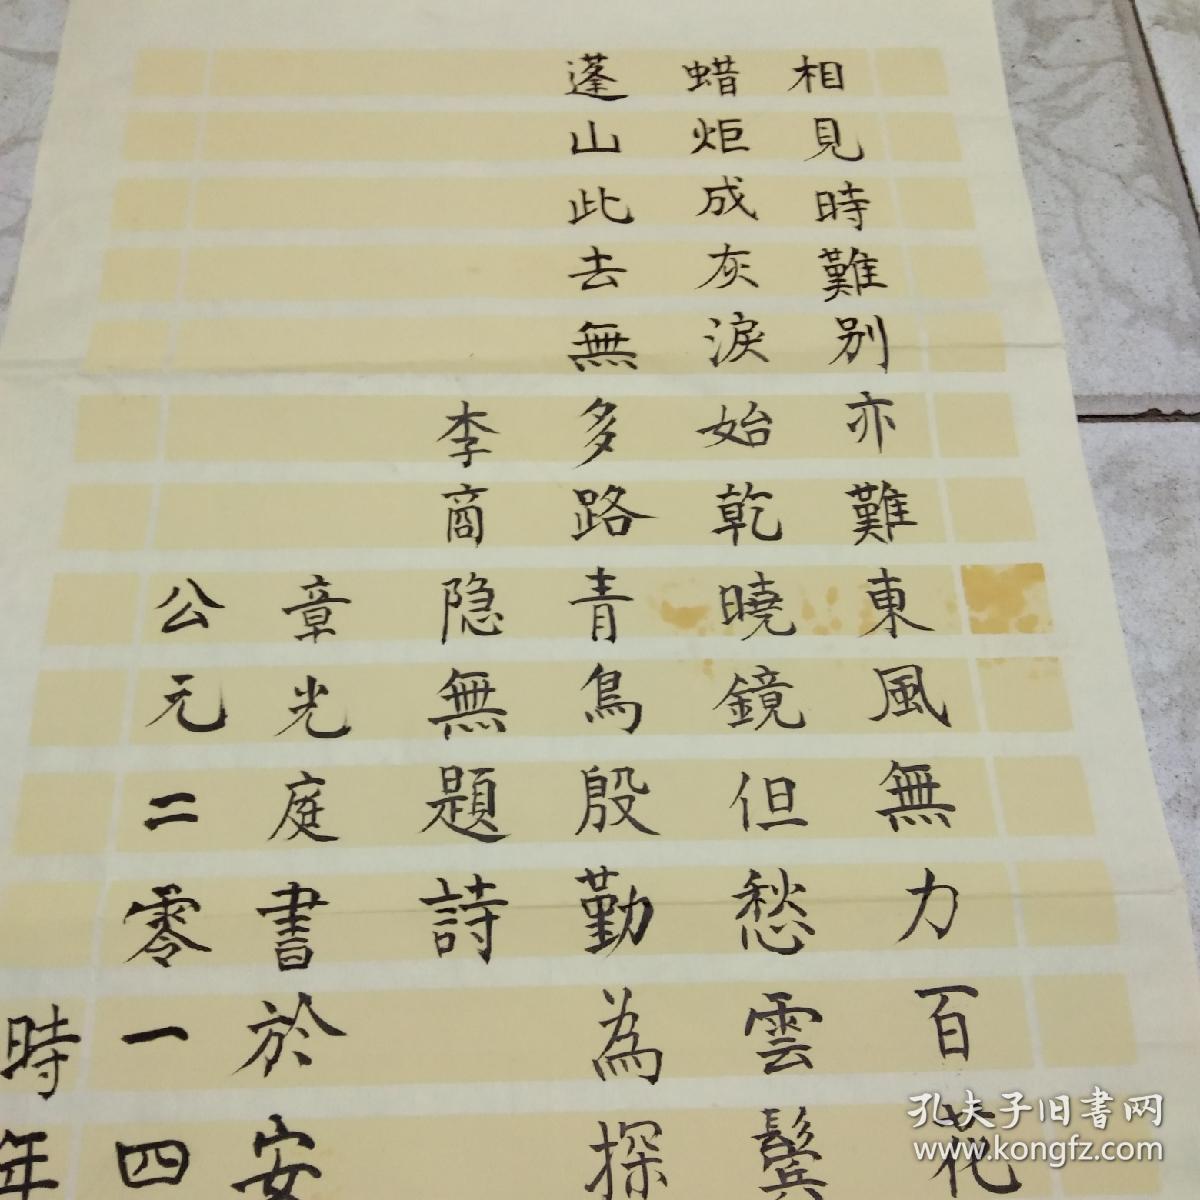 相見時難别亦難東風無力百花
蜡炬成灰淚始乾曉鏡但愁雲鬓
蓬山此去無多路青鳥殷勤為探
李商隐無題詩
章光庭書於安
公元二零一四
時年
孔夫子旧書网
www.kongfz.com